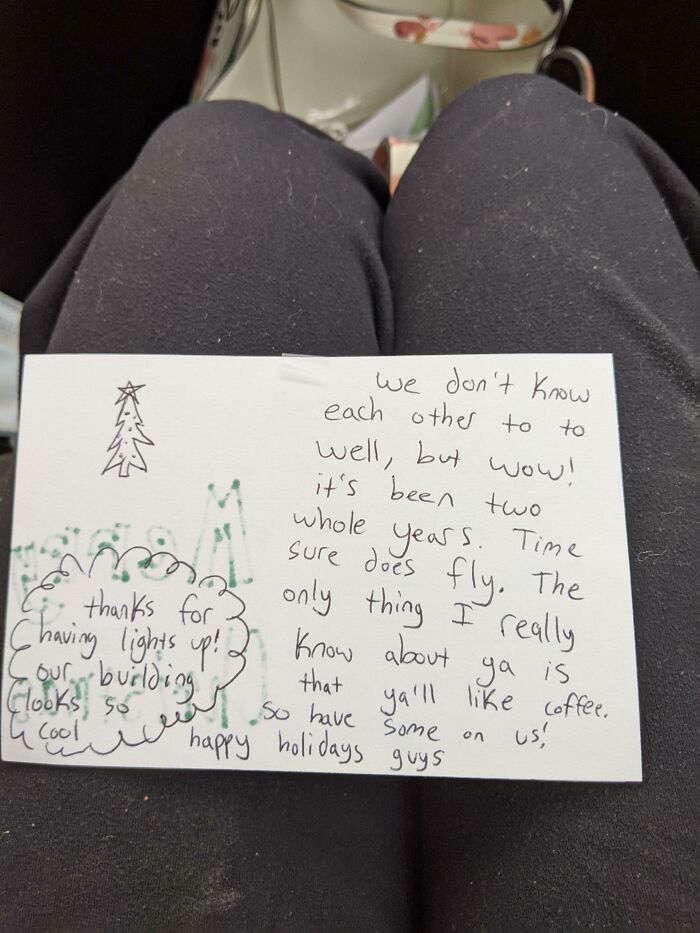 we don't know
each other to to
well, but wow!
it's been two
whole years. Time
sure does fly. The
only thing I really
know about ya is
that ya'll like coffee.
so have some on us!
happy holidays guys
thanks for
having lights up!
our building
looks so
cool
Merry
Christmas